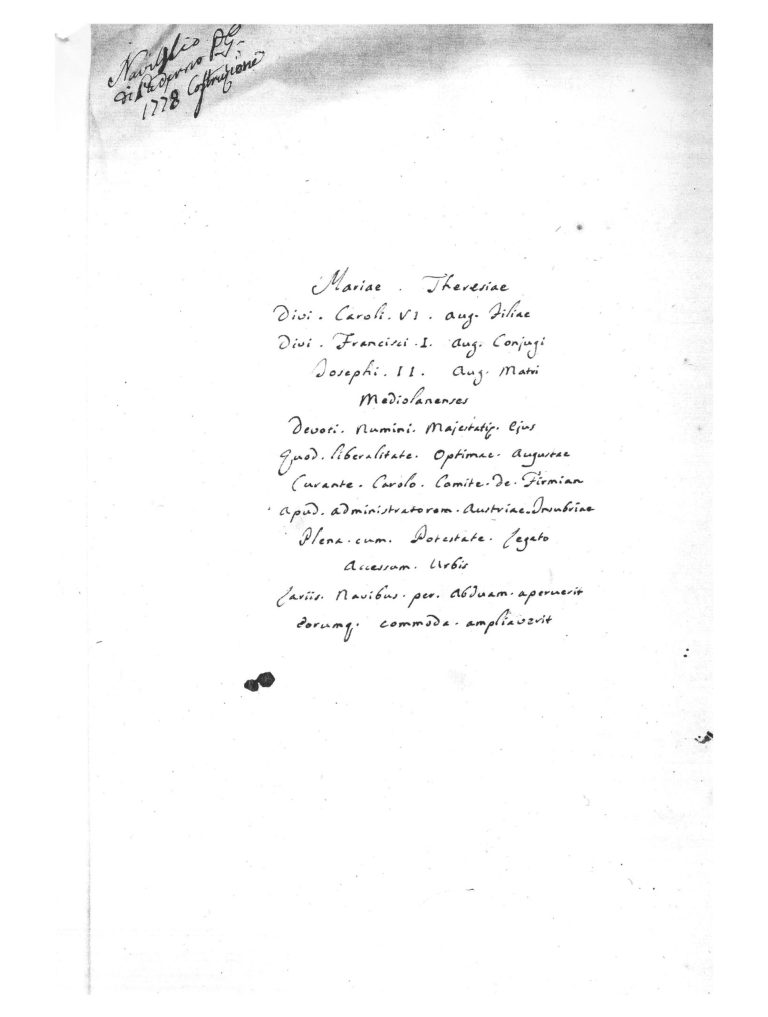 Naviglio
di Paderno P.G.
1778 Costruzione
Mariae . Theresiae
Divi . Caroli . VI . Aug. Filiae
Divi . Francisci . I . Aug. Conjugi
Josephi . II . Aug. Matri
Mediolanenses
Devoti . Numini . Majestatiq. Ejus
Quod . liberalitate . Optimae . Augustae
Curante . Carolo . Comite . de . Firmian
apud . administratorem . Austriae . Insubriae
Plena . cum . Potestate . Legato
Accessum . Urbis
Lariis . Navibus . per . Abduam . aperuerit
eorumq. commoda . ampliaverit